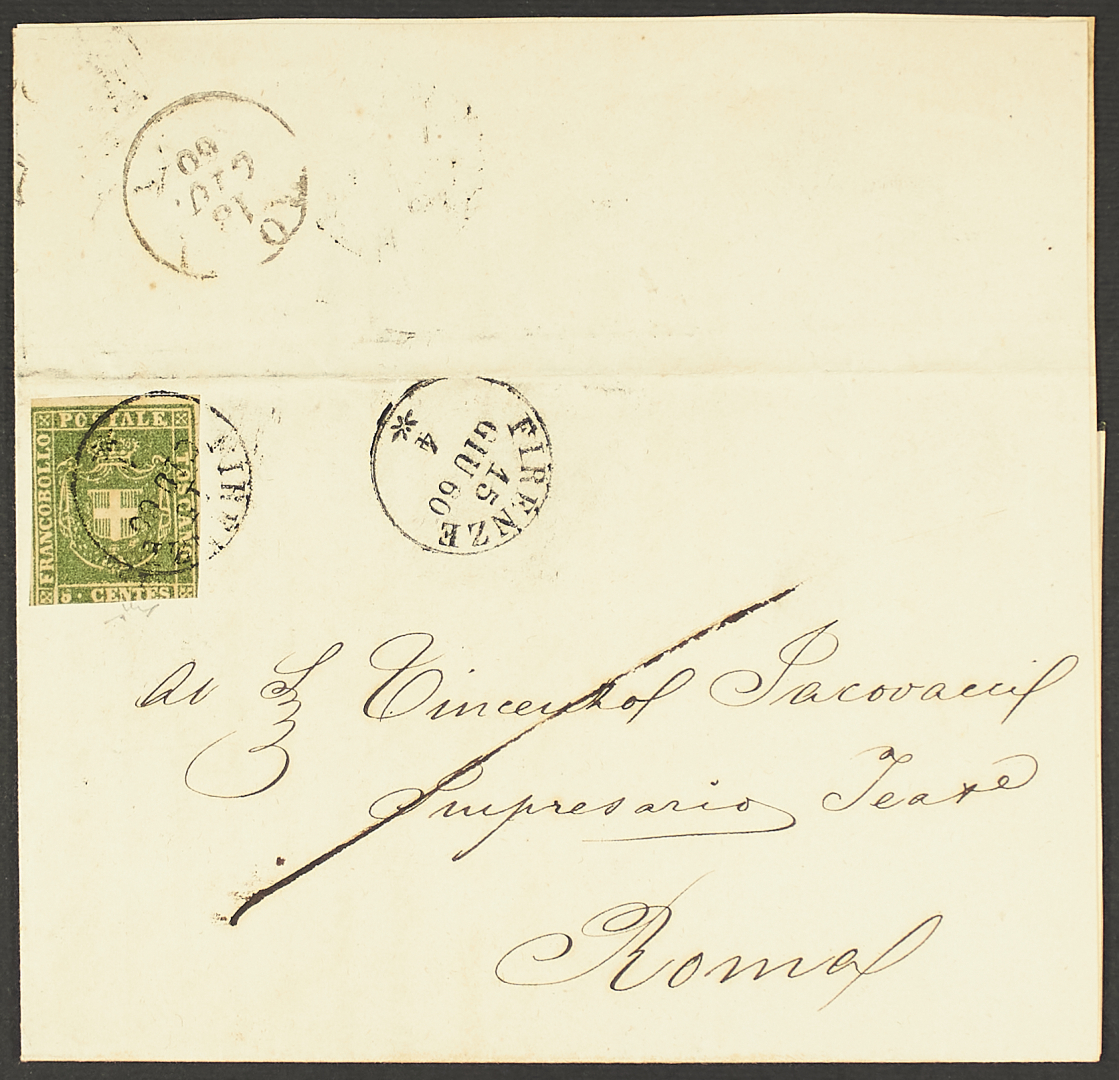 18
GIU.
60
FRANCOBOLLO
POSTALE
TOSCANO
5 · CENTES
FIRENZE
FIRENZE
15
GIU 60
4
*
Al Sr Vincenzo Jacovacci
Impresario Teatr
Roma